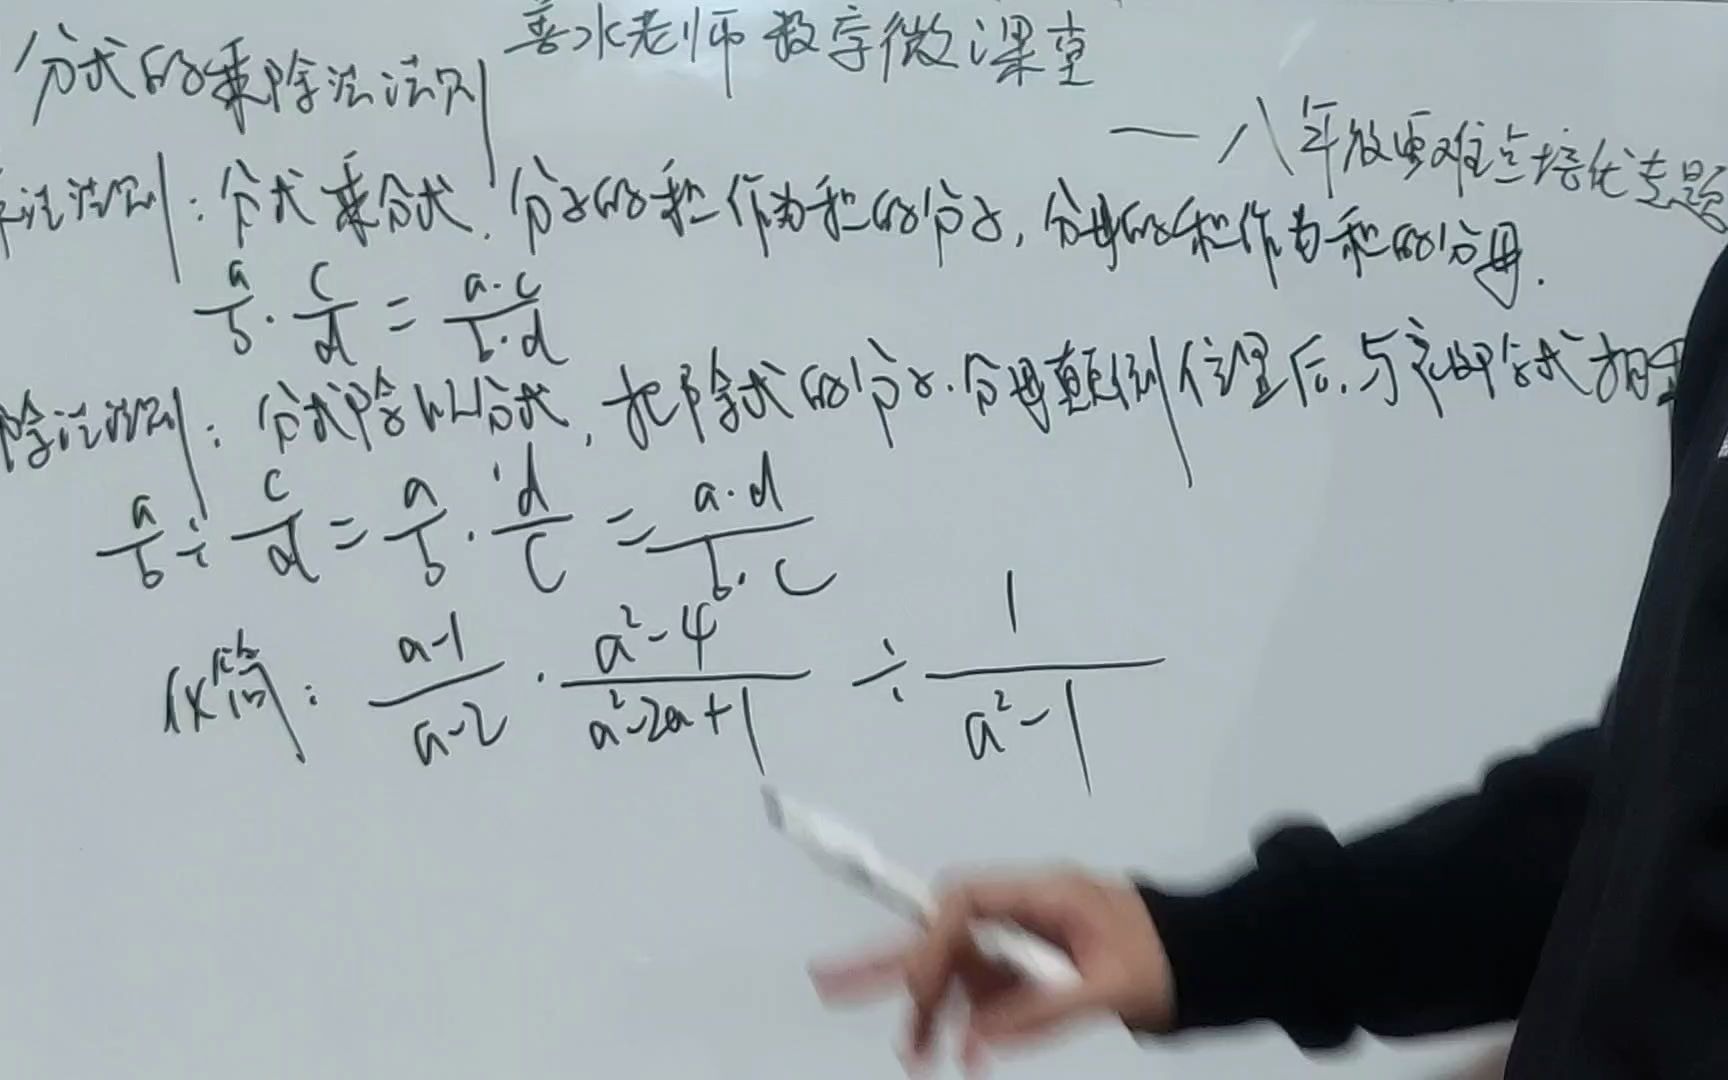 善水老师数学微课堂
分式的乘除法法则
——八年级重难点培优专题
乘法法则：分式乘分式，分子的积作为积的分子，分母的积作为积的分母.
a/b · c/d = a·c/b·d
除法法则：分式除以分式，把除式的分子.分母颠倒位置后.与被除式相乘
a/b ÷ c/d = a/b · d/c = a·d/b·c
化简：a-1/a-2 · a²-4/a²-2a+1 ÷ 1/a²-1